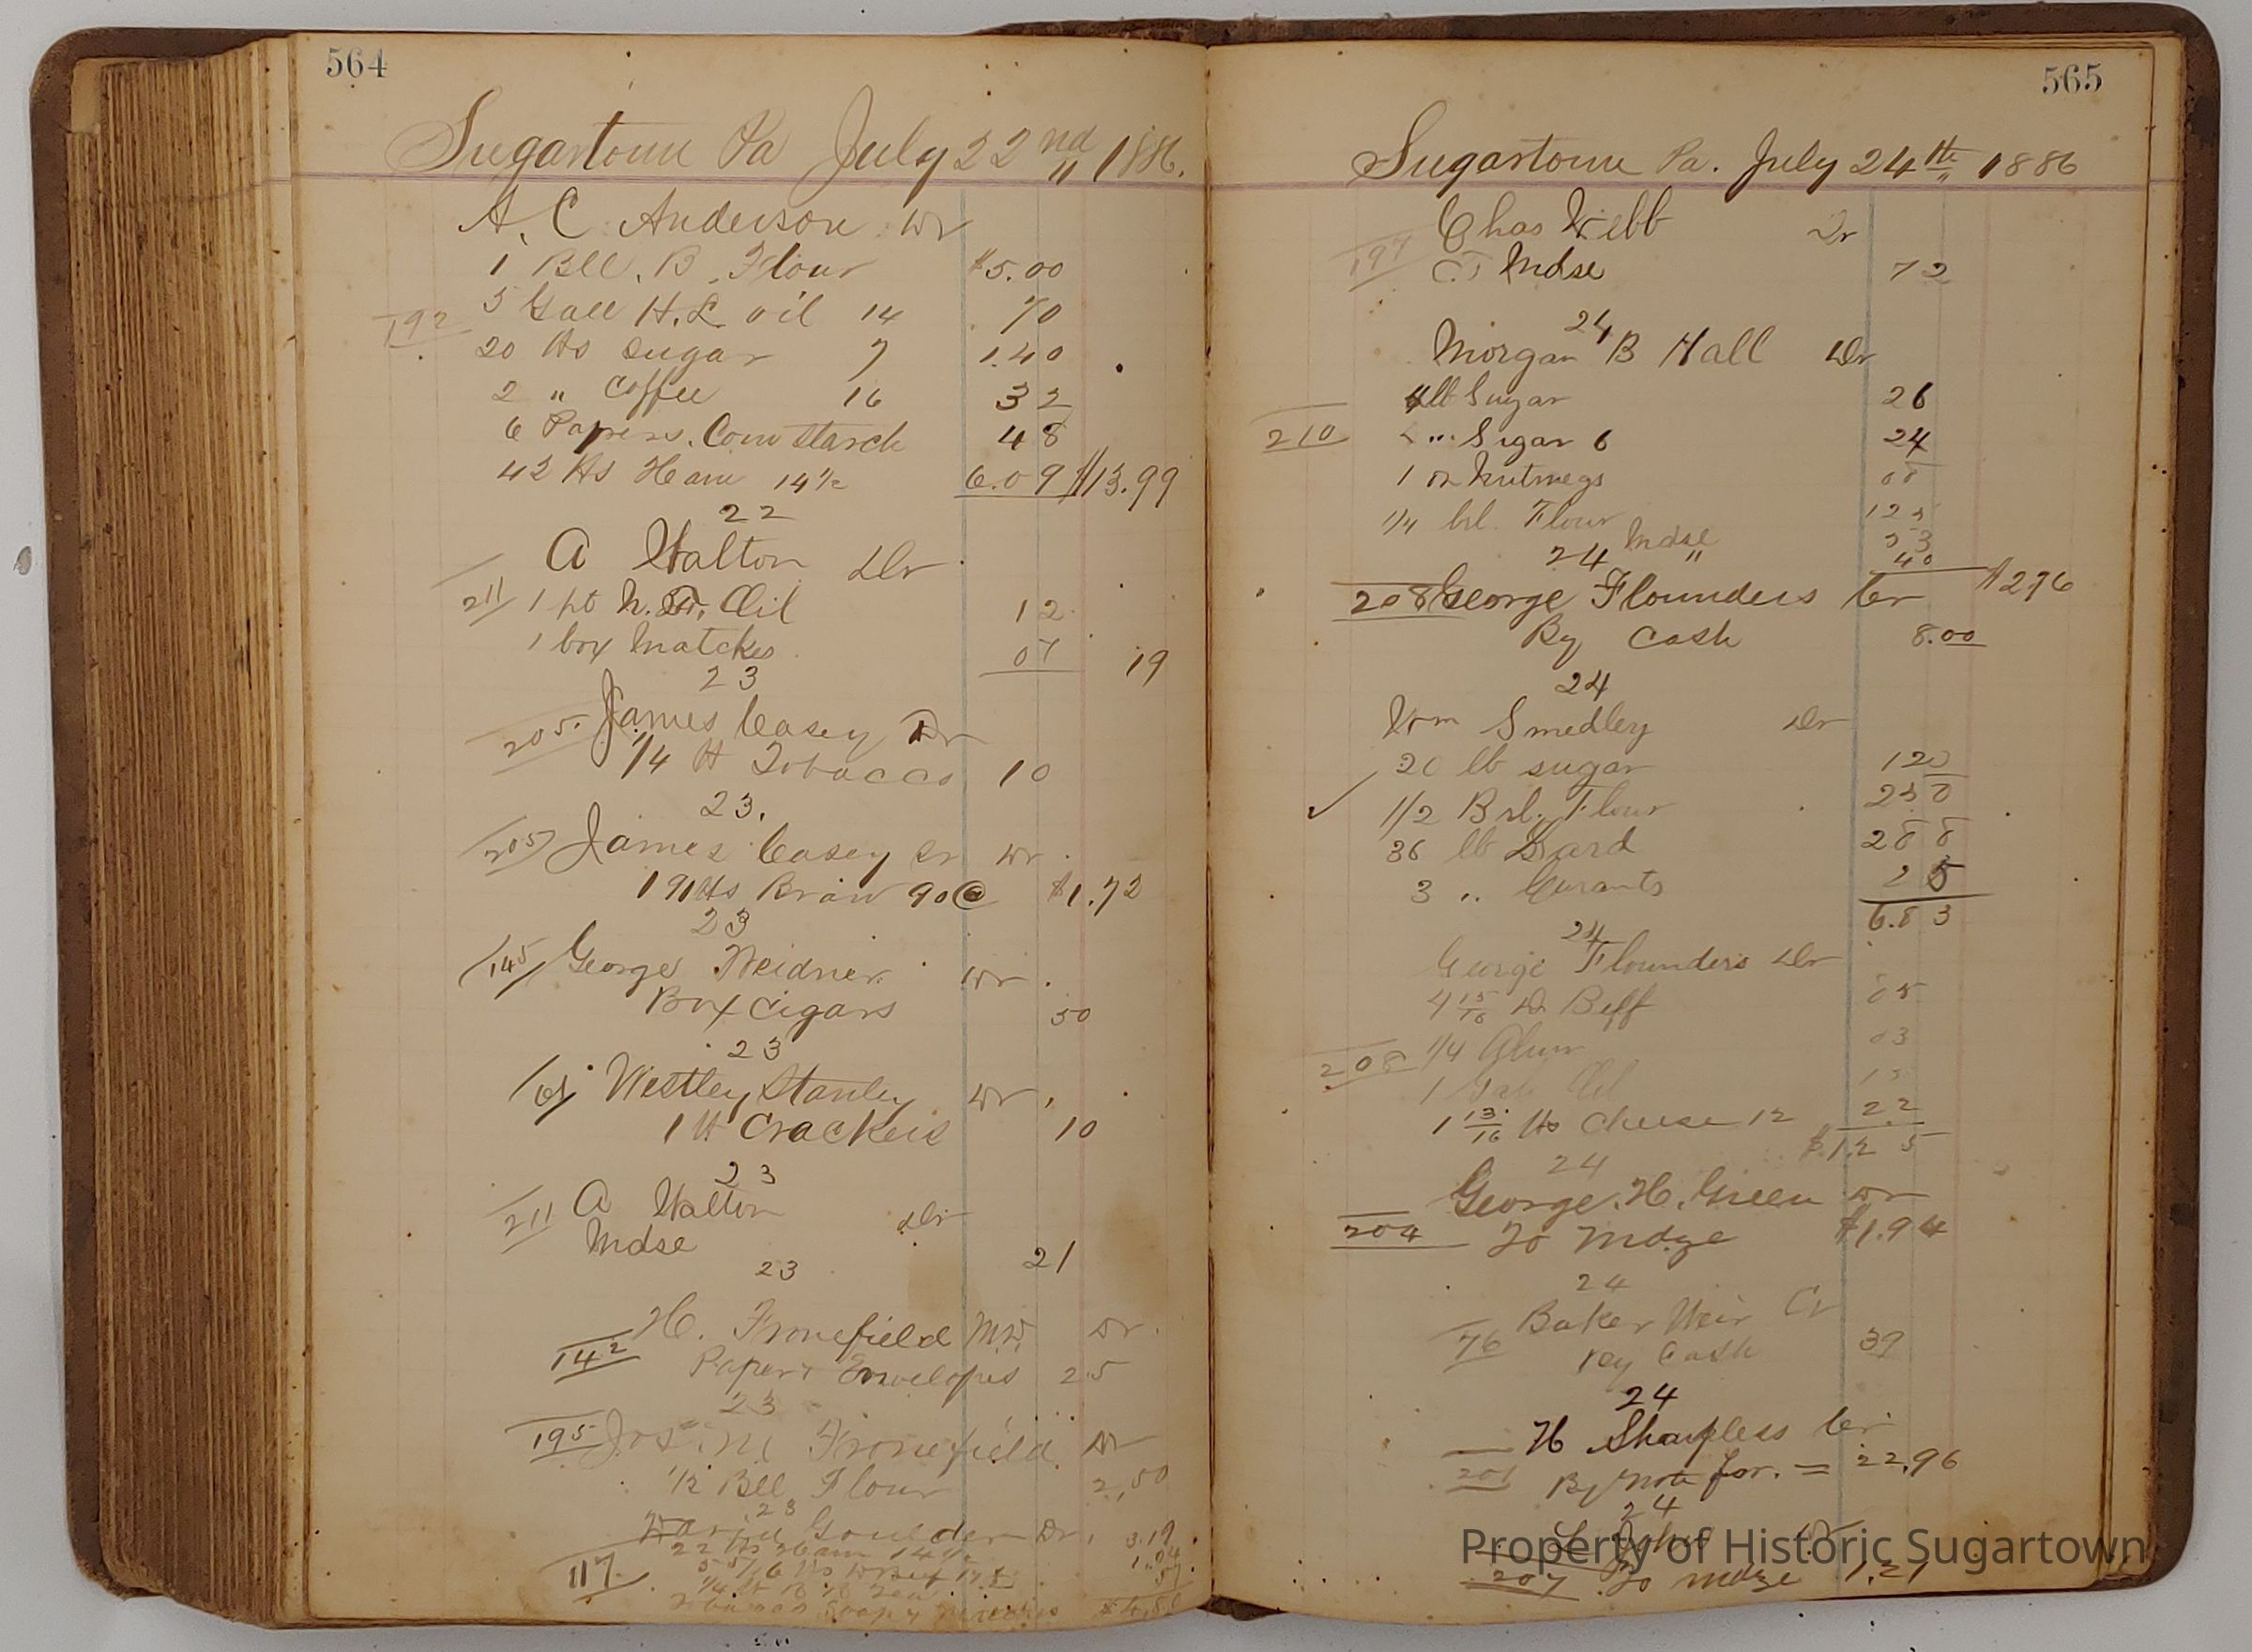 564
Sugartown Pa July 22nd 1886.
A. C. Anderson Dr
1 Bll. B. Flour $5.00
5 Gall H.L. oil 14 70
192
20 lbs Sugar 7 1.40
2 " Coffee 16 32
6 Papers. Corn Starch 48
42 lbs Ham 14½ 6.09 $13.99
22
A Walton Dr
211 1 pt Oil 12
1 box Matches 07 19
23
205. James Casey Dr
1/4 lb Tobacco 10
23.
205 James Casey Sr Dr
191 lbs Bran 90@ $1.72
23
145 George Weidner Dr
Box Cigars 50
23
Westley Stanley Dr
1 lb Crackers 10
23
211 A Walton Dr
Mdse 21
23
H. Fronefield MD Dr
142 Paper & Envelopes 25
23
195 Jos. M Fronefield Dr
1/2 Bll Flour 2,50
23
Goulder Dr
22 lbs Ham 14½ 3.19
117
565
Sugartown Pa. July 24th 1886
Chas Webb Dr
197 Mdse 72
24
Morgan B Hall Dr
lb Sugar 26
210 " Sugar 6 24
1 oz Nutmegs 08
1/4 brl. Flour 125
Mdse 53
24 " 40
208 George Flounders Cr $276
By Cash 8.00
24
Wm Smedley Dr
20 lb sugar 120
1/2 Brl. Flour 250
36 lb Lard 288
3 " Curants 25
6.83
24
George Flounders Dr
4 15/16 lb Beff
208 1/4 Alum 03
1 Oil
1 13/16 lbs Cheese 12 22
$1.25
24
George. H. Green Dr
204 To Mdze $1.94
24
Baker Weir Cr
76 By Cash 39
24
H Sharpless Cr
201 By Note for. = 22,96
24
207 To Mdze 1.21
Property of Historic Sugartown